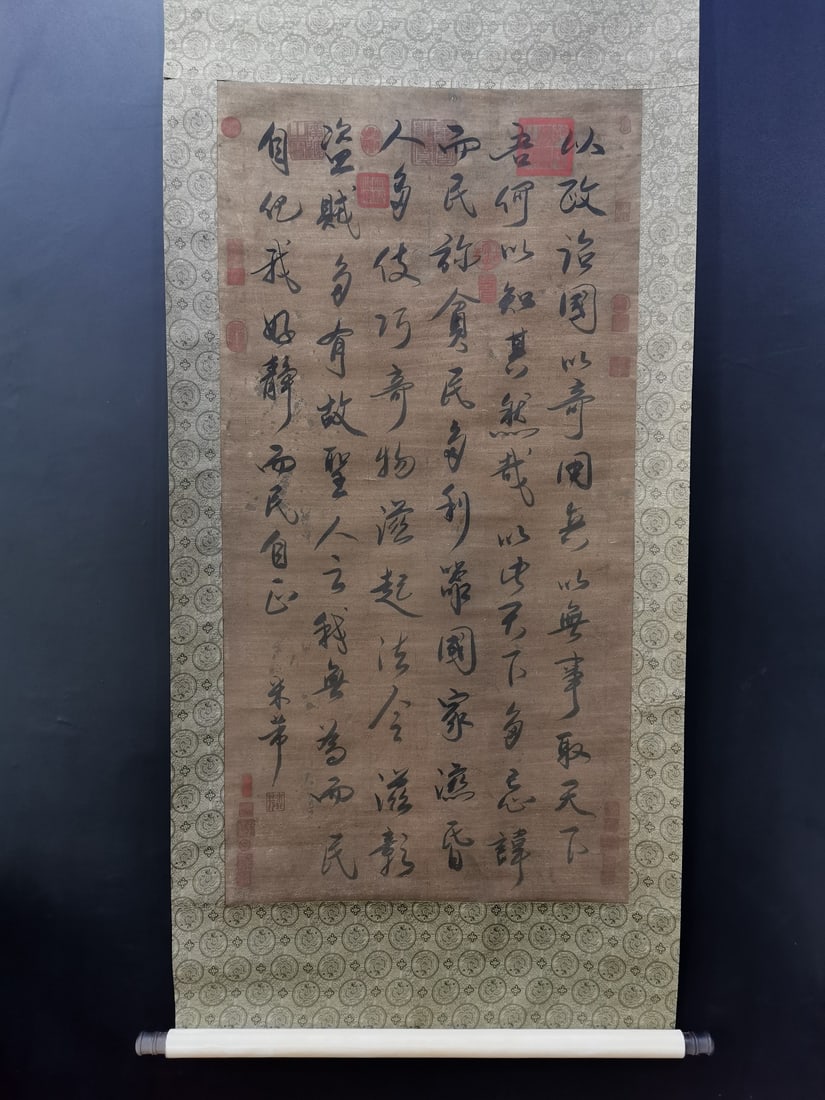 以政治國以奇用兵以無事取天下
吾何以知其然哉以此天下多忌諱
而民弥貧民多利器國家滋昏
人多伎巧奇物滋起法令滋彰
盜賊多有故聖人云我無為而民
自化我好靜而民自正
米芾